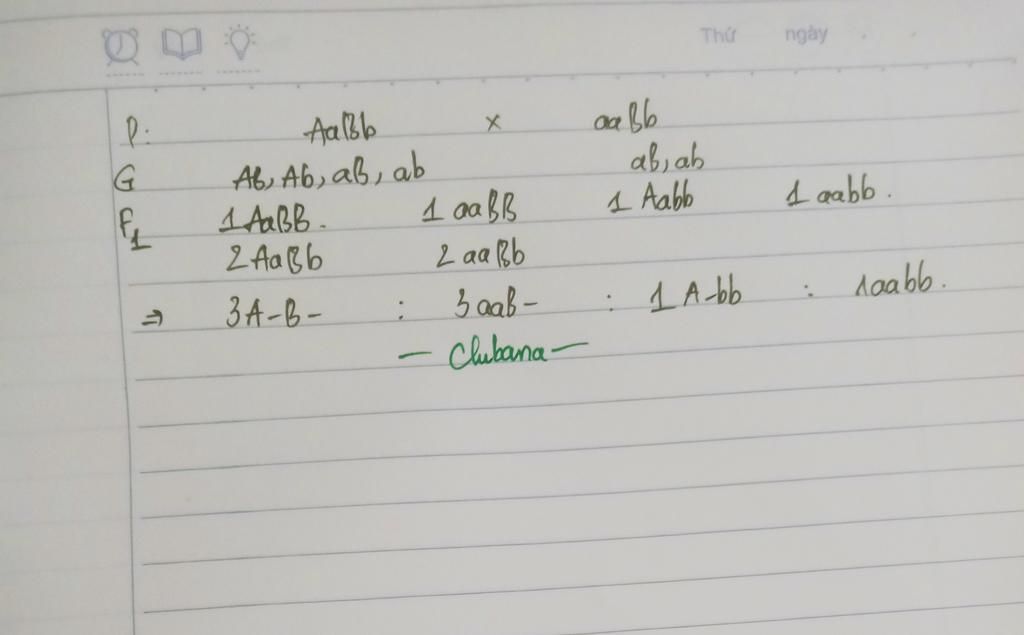 Thứ ngày
P: AaBb x aaBb
G AB, Ab, aB, ab aB, ab
F1 1 AaBB. 1 aaBB 1 Aabb 1 aabb.
2 AaBb 2 aaBb
=> 3A-B- : 3 aaB- : 1 A-bb : 1aabb.
— Clubana —